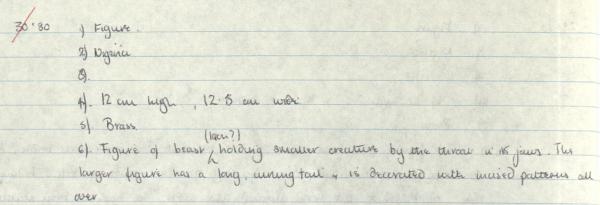 30·80 1) Figure.
2) Nigeria
3).
4). 12 cm high, 12·5 cm wide
5) Brass.
(lion?)
6) Figure of beast holding smaller creature by the throat in its jaws. The
larger figure has a long, curving tail & is decorated with incised patterns all
over